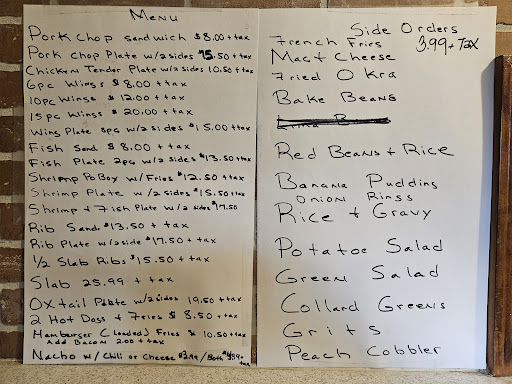 Menu
Pork Chop Sandwich $8.00 + tax
Pork Chop Plate w/2 sides 15.50 + tax
Chicken Tender Plate w/2 sides 10.50 + tax
6pc Wings $8.00 + tax
10pc Wings $12.00 + tax
15pc Wings $20.00 + tax
Wing Plate 8pc w/2 sides $15.00 + tax
Fish Sand $8.00 + tax
Fish Plate 2pc w/2 sides $13.50 + tax
Shrimp PoBoy w/Fries $12.50 + tax
Shrimp Plate w/2 sides $15.50 + tax
Shrimp + Fish Plate w/2 sides $17.50
Rib Sand $13.50 + tax
Rib Plate w/2 side $17.50 + tax
1/2 Slab Ribs $15.50 + tax
Slab 25.99 + tax
Oxtail Plate w/2 sides 19.50 + tax
2 Hot Dogs + Fries $8.50 + tax
Hamburger (Loaded) Fries $10.50 + tax
Add Bacon 2.00 + tax
Nacho w/ Chili or Cheese $3.99/Both $4.99 + tax
Side Orders
French Fries 3.99 + Tax
Mac + Cheese
Fried Okra
Bake Beans
Red Beans + Rice
Banana Pudding
Onion Rings
Rice + Gravy
Potatoe Salad
Green Salad
Collard Greens
Grits
Peach Cobbler